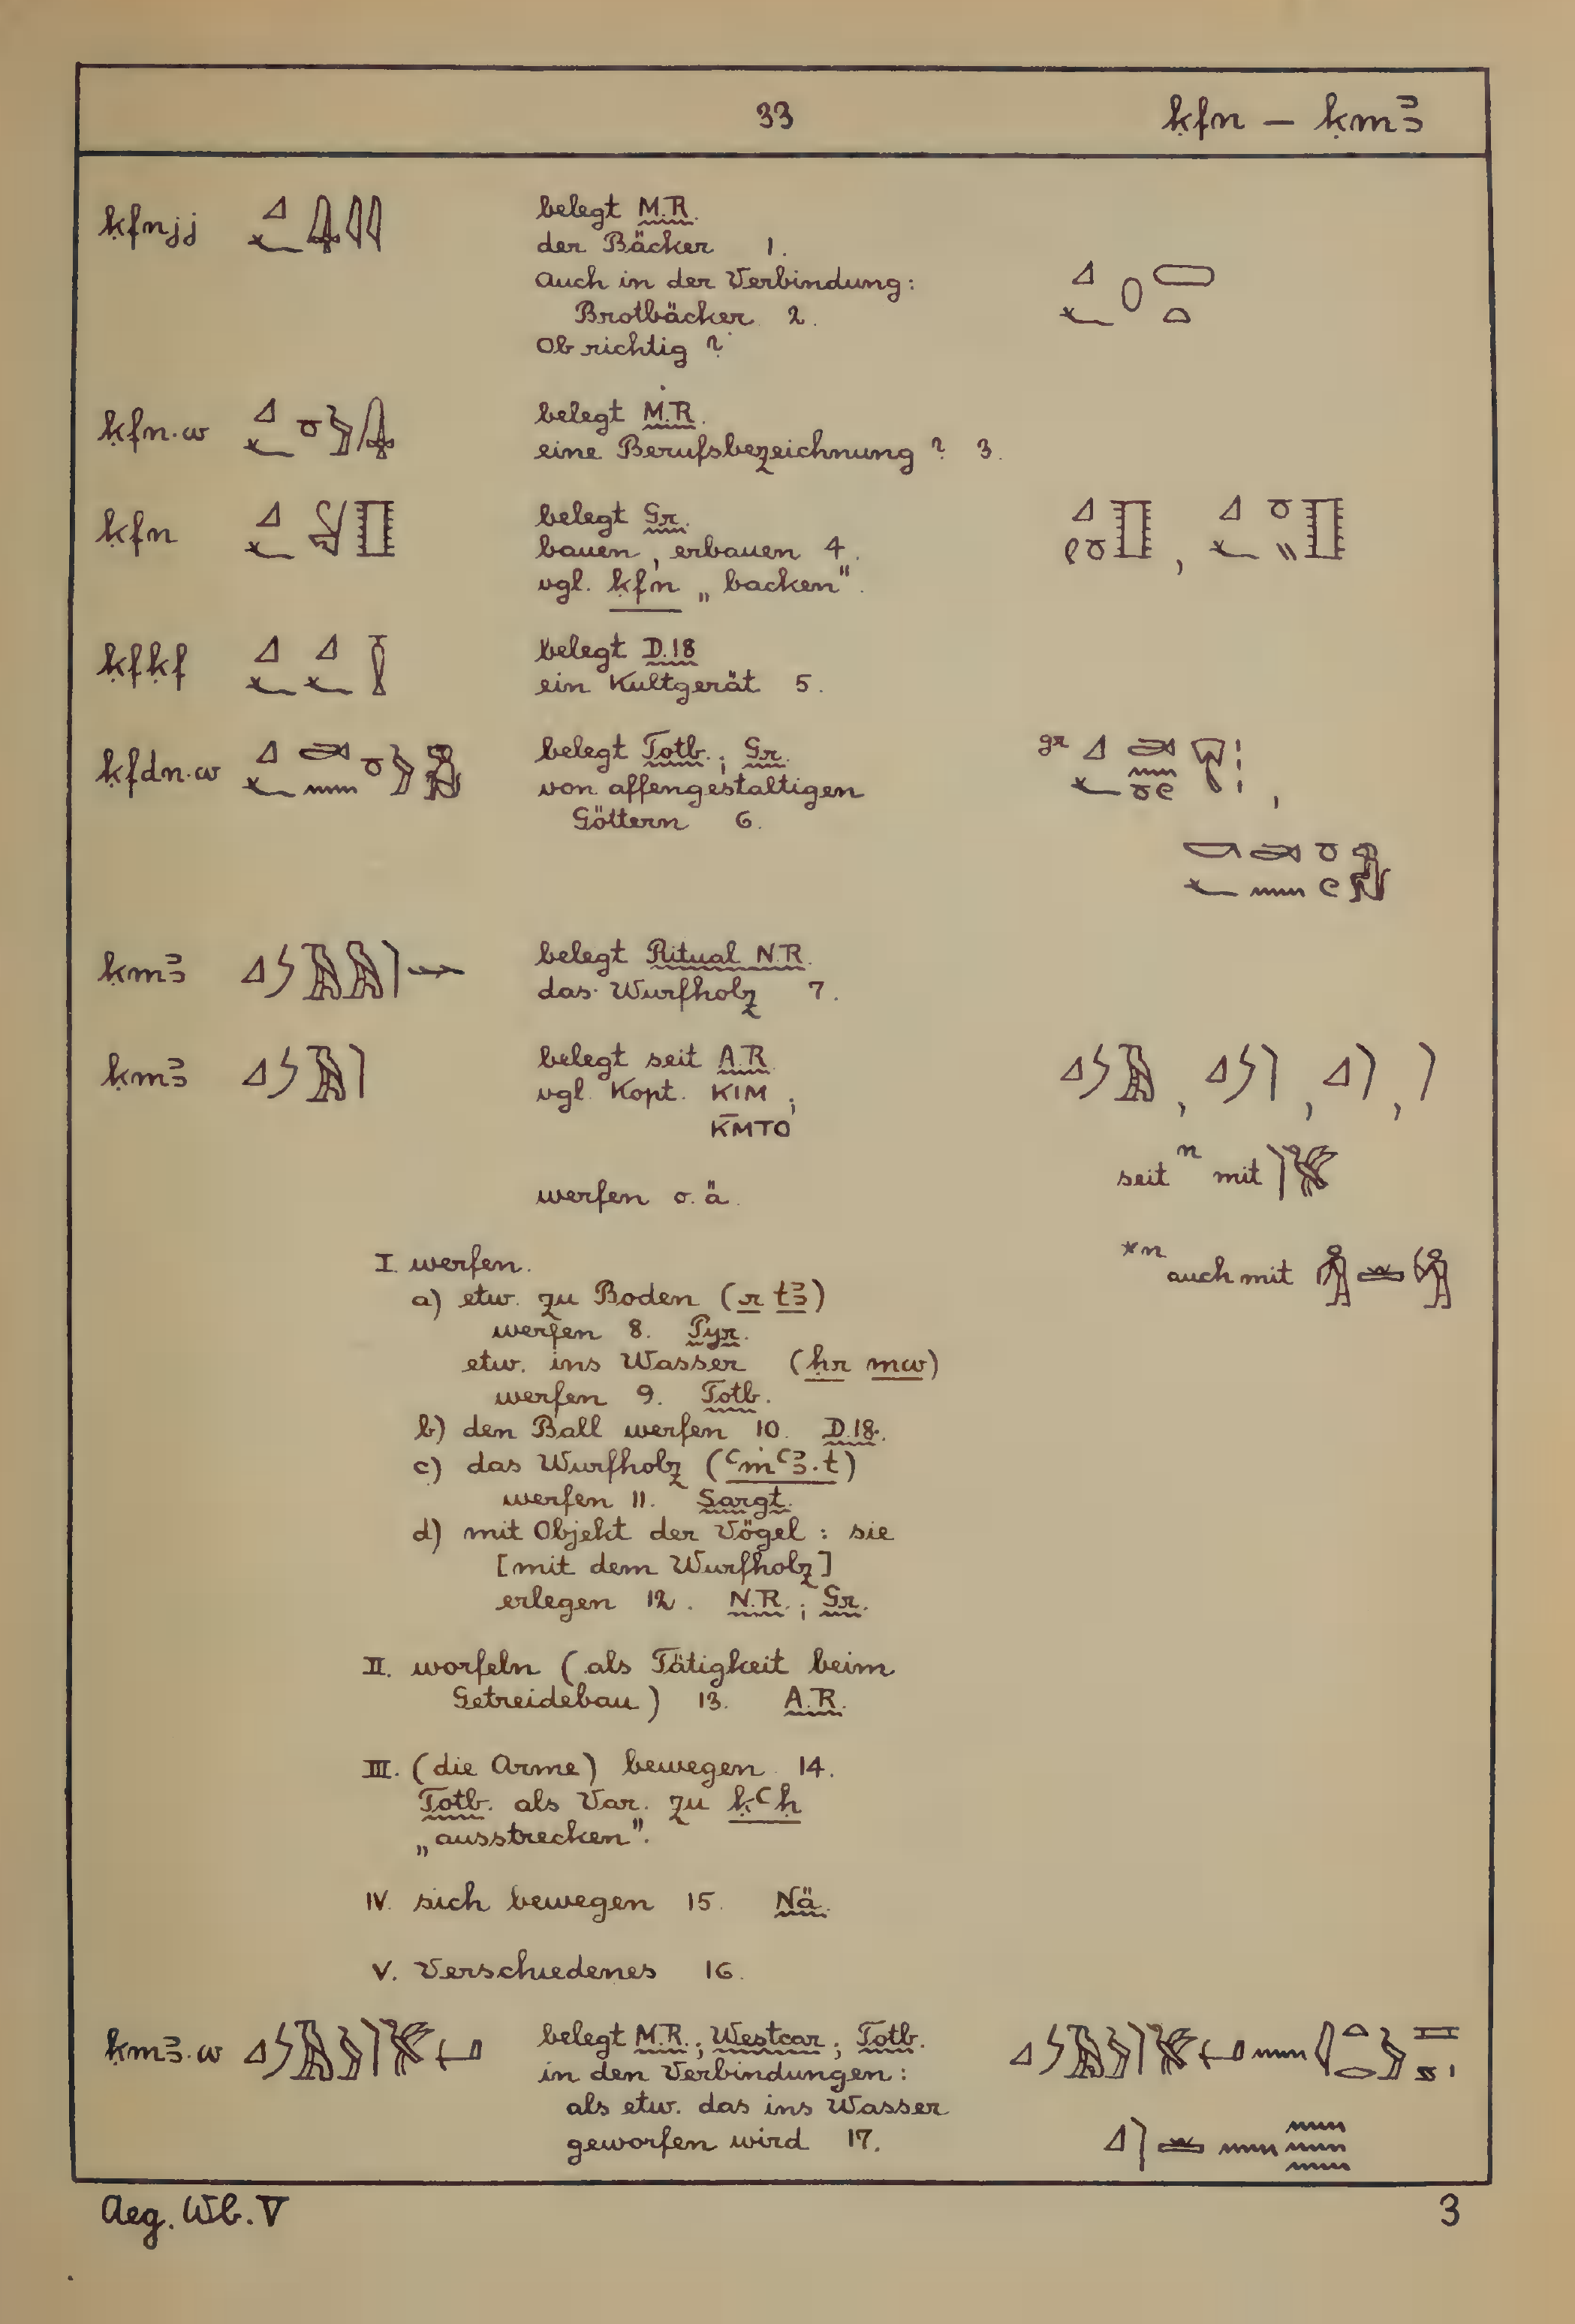 33 ḳfn – ḳmꜣ
ḳfnjj belegt M.R.
der Bäcker 1.
auch in der Verbindung:
Brotbäcker 2.
Ob richtig?
ḳfn·w belegt M.R.
eine Berufsbezeichnung? 3.
ḳfn belegt Gr.
bauen, erbauen 4.
vgl. ḳfn „backen".
ḳfḳf belegt D.18
ein Kultgerät 5.
ḳfdn·w belegt Totb.; Gr. gr
von affengestaltigen
Göttern 6.
ḳmꜣ belegt Ritual N.R.
das Wurfholz 7.
ḳmꜣ belegt seit A.R.
vgl. Kopt. ⲕⲓⲙ;
ⲕ̄ⲙⲧⲟ
seit n mit
werfen o.ä.
I. werfen.
*n auch mit
a) etw. zu Boden (r tꜣ)
werfen 8. Pyr.
etw. ins Wasser (ḥr mw)
werfen 9. Totb.
b) den Ball werfen 10. D.18.
c) das Wurfholz (ꜥmꜥꜣ·t)
werfen 11. Sargt.
d) mit Objekt der Vögel: sie
[mit dem Wurfholz]
erlegen 12. N.R.; Gr.
II. worfeln (als Tätigkeit beim
Getreidebau) 13. A.R.
III. (die Arme) bewegen 14.
Totb. als Var. zu ḳꜥḥ
„ausstrecken".
IV. sich bewegen 15. Nä.
V. Verschiedenes 16.
ḳmꜣ·w belegt M.R.; Westcar; Totb.
in den Verbindungen:
als etw. das ins Wasser
geworfen wird 17.
Aeg. Wb. V 3